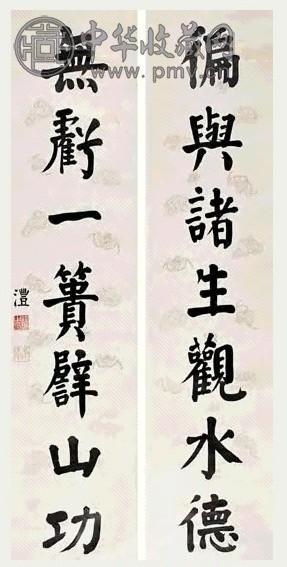 中华收藏网
www.pmv.cn
徧與諸生觀水德
無虧一簣譬山功
澧